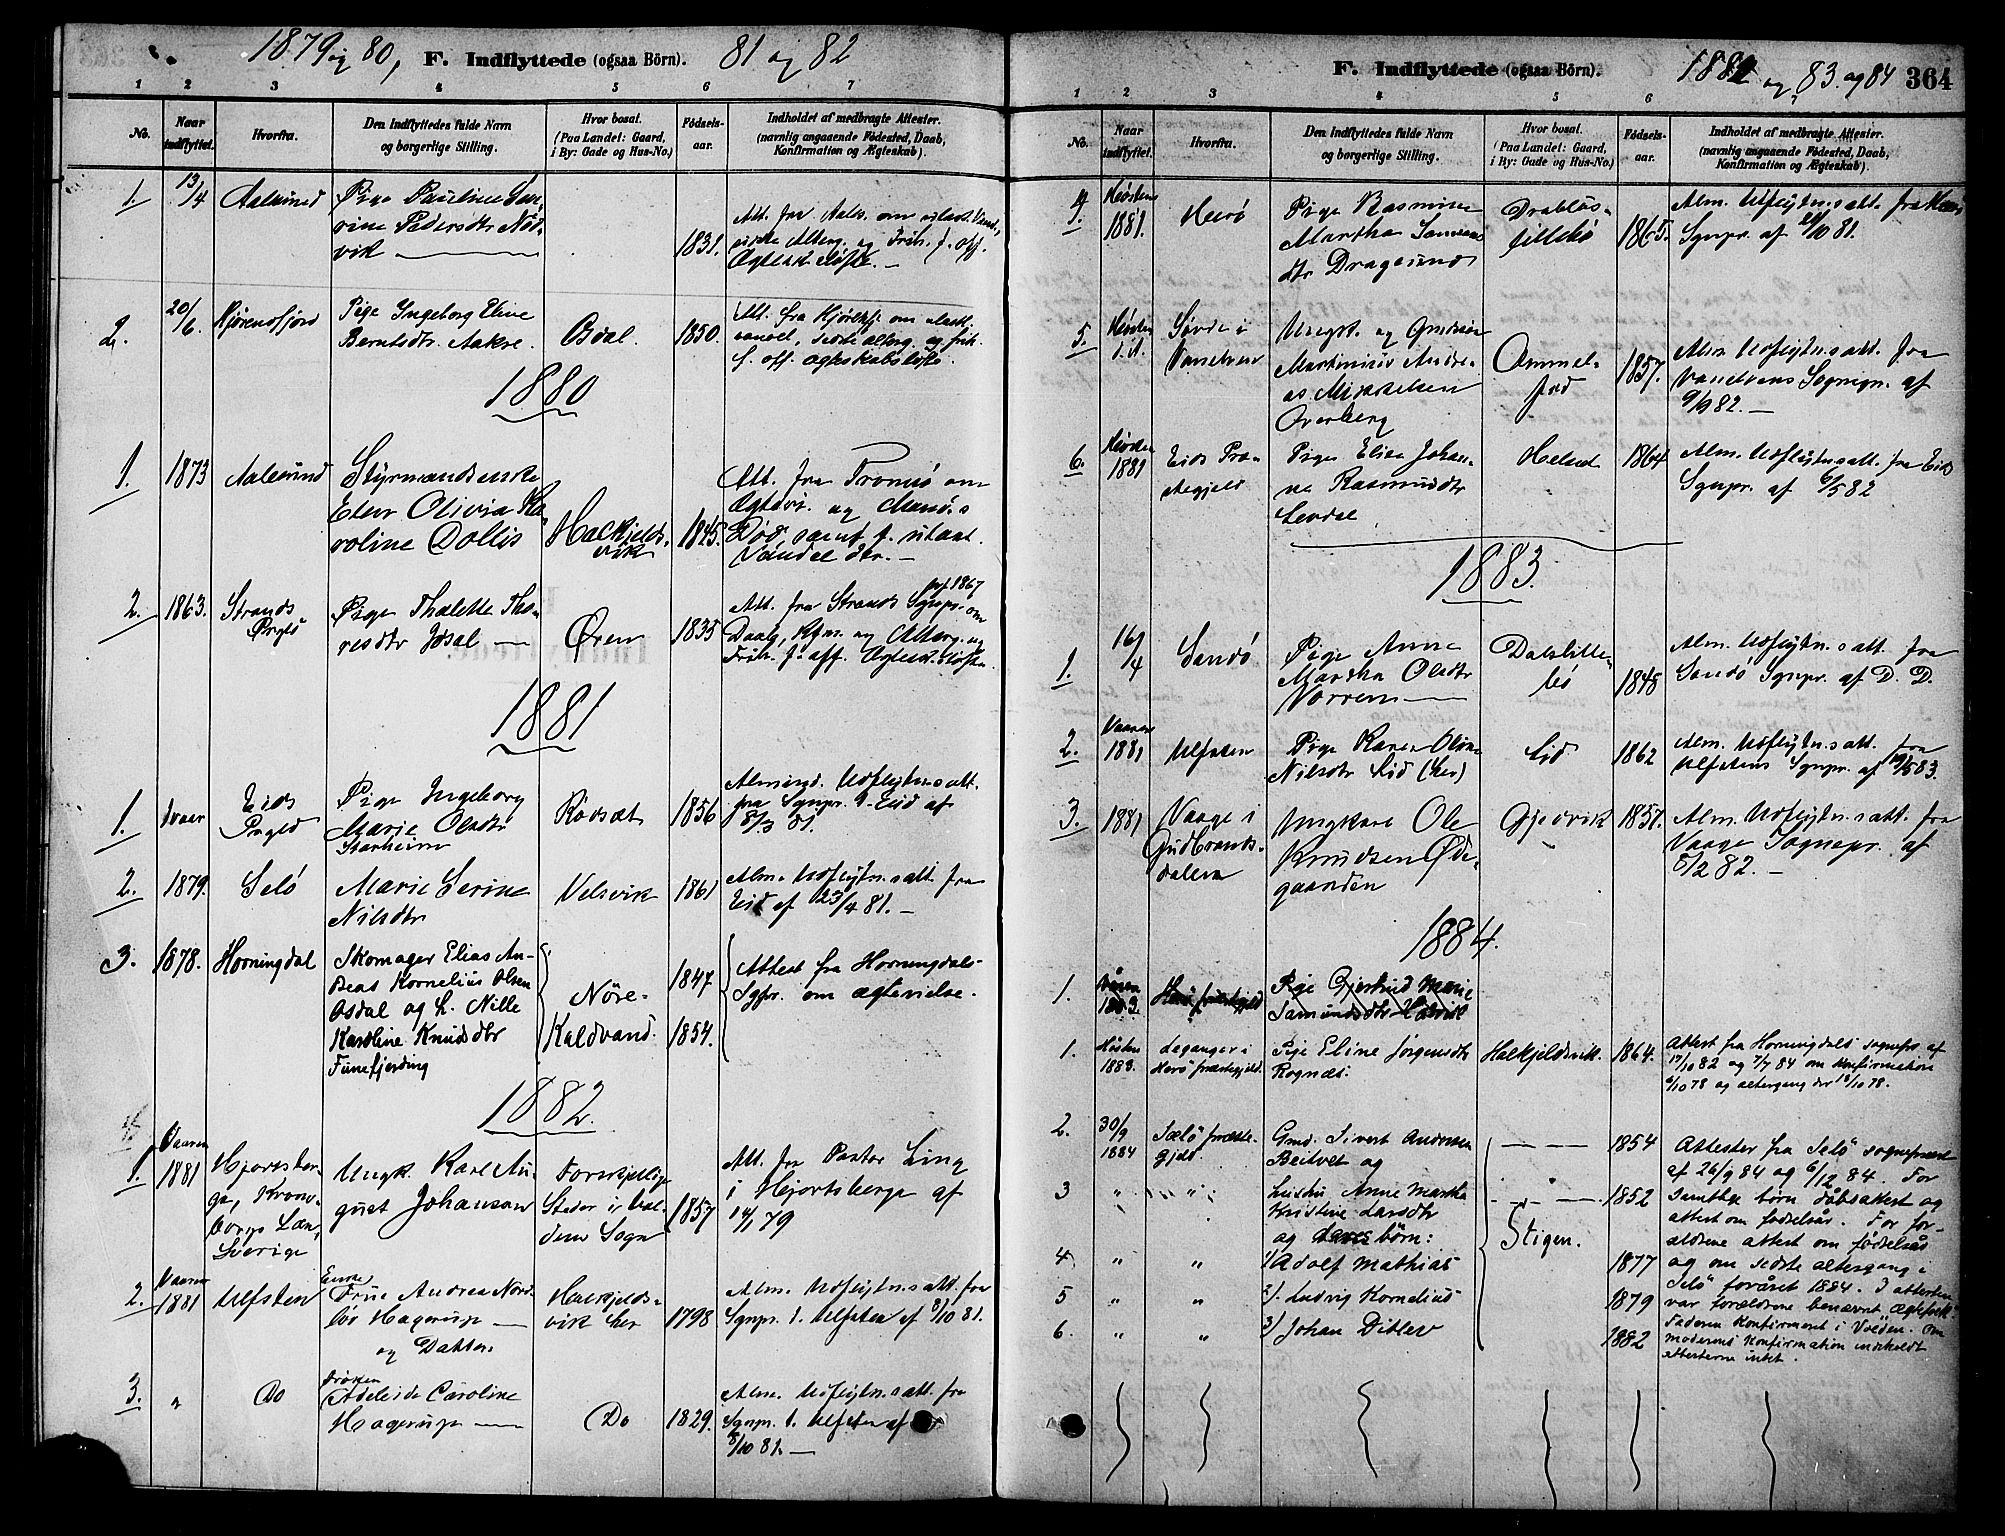 1879 og 80, F. Indflyttede (ogsaa Börn). 81 og 82
1 2 3 4 5 6 7
No.
Naar indflyttet.
Hvorfra.
Den Indflyttedes fulde Navn
og borgerlige Stilling.
Hvor bosat.
(Paa Landet: Gaard,
i By: Gade og Hus-No.)
Fødsels-
aar.
Indholdet af medbragte Attester.
(navnlig angaaende Fødested, Daab,
Konfirmation og Ægteskab).
1. 13/4 Aalesund
Pige Pauline Se-
rine Pedersdtr Nød-
vik
1831.
Att. fra Aales. om
sidste Alterg. og Frih. f. off.
Ægtesk. Löfte. —
2. 20/6. Hjörendfjord
Pige Ingeborg Eline
Berntsdtr. Aakre.
Osdal.
1850.
Att. fra Hjörendfj. om
vandel, sidste alterg. og frih.
f. off. Ægteskabslöfte.
1880
1. 1873 Aalesund
Styrmandsenke
Elen Olivia Ka-
roline Dollis
Halkjelds-
vik
1845.
Att. fra Tromsö om
Ægtevi. og Mands
Död, samt f. ulast.
Vandel der. —
2. 1863. Strands
Prgld
Pige Thalette Tho-
resdtr Josal —
Ören
1835
Att. fra Strands Sgnpr. om
Daab, Kfm. og Alterg. og
Frih. f. off. Ægtesk. Löfter.
1881
1. Ivaar Eids
Prgld
Pige Ingeborg
Marie Olsdtr
Starheim
Rödsæt
1856
Almind. Udflytn.s att.
fra Sgnpr. i Eid af
8/3 81.
2. 1879. Selö
Marie Serine
Nilsdtr
Velsvik
1861
Alm. Udflytn.s att. fra
Eid af 23/4 81. —
3. 1878. Horningdal
Skomager Elias An-
dreas Kornelius Olsen
Osdal og h. Nille
Karoline Knudsdtr
Funefjerding
Nöre-
Kaldvand.
1847
1854.
Attest fra Horningdals-
Sgpr. om ægtevielse.
1882.
1. Vaaren
1881
Hjortsber-
ga, Krono-
borgs Län,
Sverige
Ungk. Karl Au-
gust Johanson
Forskjellige
Steder i Vol-
dens Sogn
1857
Att. fra Pastor Ling
i Hjortsberga af
14/1 79
2. Vaaren
1881 Ulfsten
Enke
Frue Andrea Nord-
lör Hagerup —
og Datter
Halkjelds-
vik her
1798
Alm. Udflytn.s att. fra
Sgnpr. t. Ulfsten af 8/10 81.
3. " Do
Fröken
Adeleide Caroline
Hagerup —
Do
1829.
Alm. Udflytn.s att. fra
Sgnpr. t. Ulfsten af
8/10 81. —
F. Indflyttede (ogsaa Börn). 1882 og 83. og 84 364
1 2 3 4 5 6 7
No.
Naar indflyttet.
Hvorfra.
Den Indflyttedes fulde Navn
og borgerlige Stilling.
Hvor bosat.
(Paa Landet: Gaard,
i By: Gade og Hus-No.)
Fødsels-
aar.
Indholdet af medbragte Attester.
(navnlig angaaende Fødested, Daab,
Konfirmation og Ægteskab).
4. Hösten
1881. Herö
Pige Rasmine
Martha
dtr Dragsund
Drabløs-
1865.
Alm. Udflytn.s att. fra Herö
Sgnpr. af 21/10 81.
5. Hösten
Søvde i
Vanelven
Ungk. og Gmdssön
Martinius Andre-
as Mikkelsen
Overberg
Ommel-
1857.
Alm. Udflytn.s att. fra
Vanelvens Sognepr. af
9/9 82. —
6. Hösten
1881
Eids Præ-
stegjeld
Pige Elise Johan-
ne Rasmusdtr
Levdal
1864
Alm. Udflytn.s att. fra Eids
Sgnpr. af 6/5 82
1883.
1. 16/4 Sandö
Pige Anne
Martha Olsdtr
Norren —
Dalslille-
bö
1848
Alm. Udflytn.s att. fra
Sandö Sgnpr. af D. D.
2. Vaaren
1881 Ulfsten
Pige Karen Oline
Nilsdtr Lid (her)
Lid
1862
Alm. Udflytn.s att. fra
Ulfstens Sgnpr. af 19/5 83.
3. 1881
Vaage i
Gudbrands-
dalen
Ungkarl Ole
Knudsen Øde-
gaarden
Gjedvik
1857.
Alm. Udflytn.s att. fra
Vaage Sognepr. af
5/2 82. —
1884.
1. Våren
1883. Herö præstegjeld
Pige Gjertrud Marie
Samundsdtr
1. Hösten
1883.
Leganger i
Herö præstegjeld.
Pige Eline Jørgensdtr
Rognæs.
Halkjeldsvik.
1864.
Attest fra Horningdals sognepr. af
17/10 82 og 7/7 84 om konfirmation
6/10 78 og altergang der 13/10 78.
2. 30/9
1884
Sælö præste-
gjeld
Gmd. Sivert Andersen
Beitvet og
1854
3 " "
hustru Anne Martha
Kristine Larsdtr
og deres börn:
1852
Stigen.
4 " " 1) Adolf Mathias 1877
5 " " 2). Ludvig Kornelius 1879
6. " " 3) Johan Ditlev 1882
Attester fra Selö sognepræst
af 26/9 84 og 6/12 84. For
samtlige børn dåbsattest og
attest om fødselsår. For for-
ældrene attest om fødselsår
og om sidste altergang i
Selö foråret 1884. I attesten
var forældrene benævnt Ægtefolk.
Faderen Konfirmeret i Volden. Om
moderens Konfirmation indeholdt
attesterne intet.